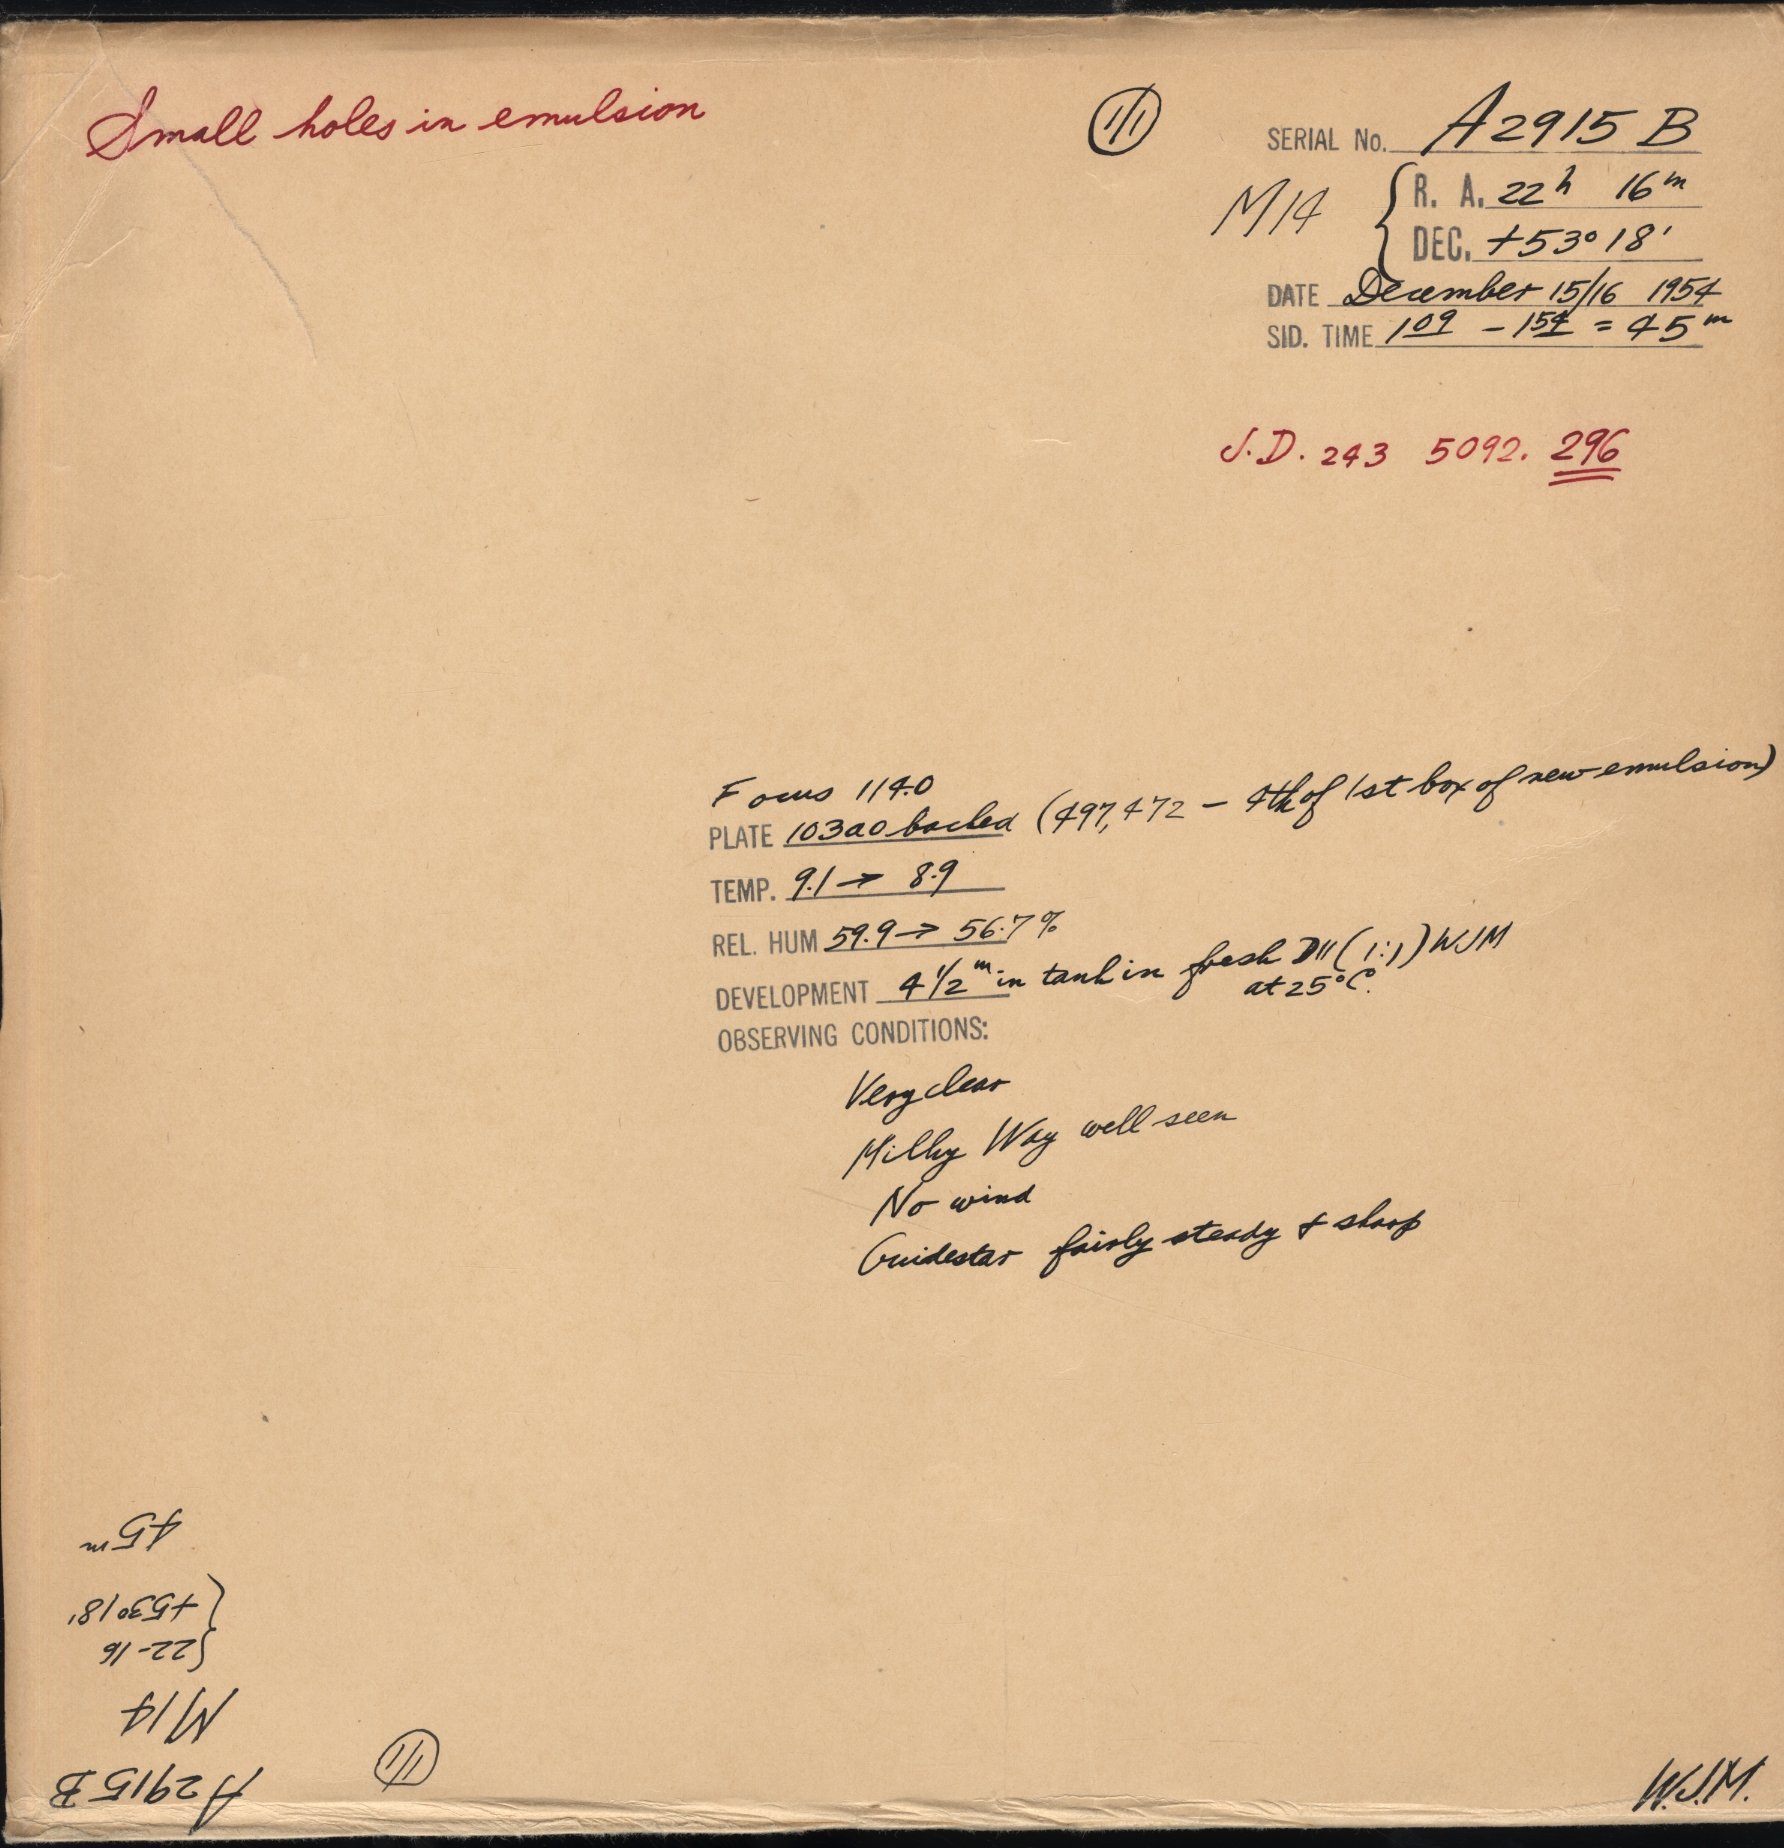 Small holes in emulsion
1/1
SERIAL No. A2915 B
M14
R. A. 22h 16m
DEC. +53° 18'
DATE December 15/16 1954
SID. TIME 1 09 - 1 54 = 45m
J.D. 243 5092. 296
Focus 114.0
PLATE 103aO backed (497,472 - 4th of 1st box of new emulsion)
TEMP. 9.1 → 8.9
REL. HUM 59.9 → 56.7 %
DEVELOPMENT 4 1/2 m in tank in fresh D11 (1:1) WJM
at 25°C.
OBSERVING CONDITIONS:
Very clear
Milky Way well seen
No wind
Guidestar fairly steady + sharp
A2915 B
M14
{22-16
{+53° 18'
45m
1/1
W.J.M.